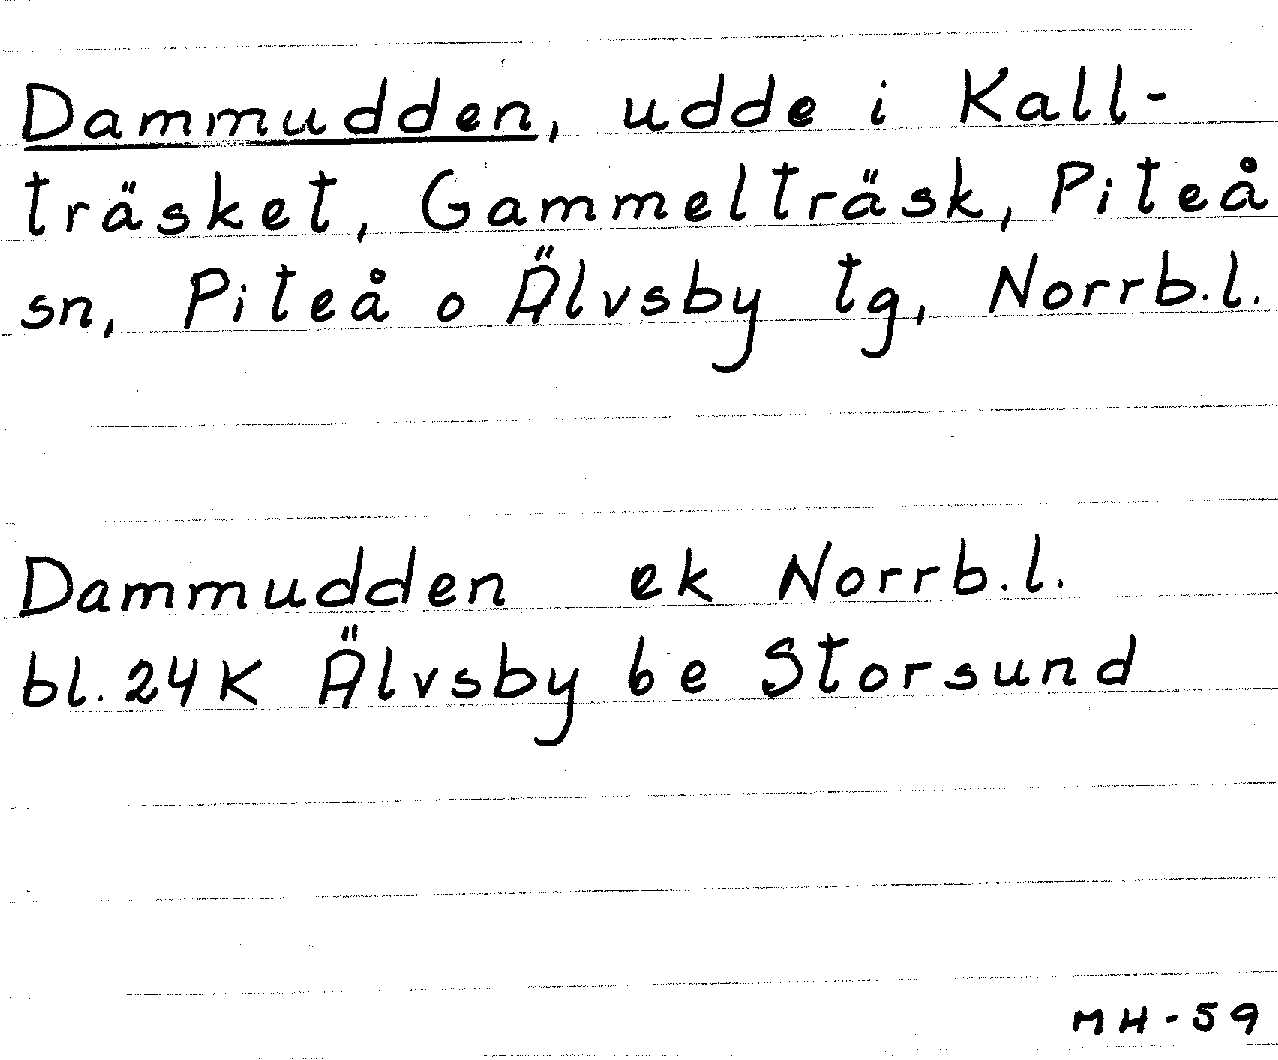 Dammudden, udde i Kall-
träsket, Gammelträsk, Piteå
sn, Piteå o Älvsby tg, Norrb.l.
Dammudden ek Norrb.l.
bl. 24 K Älvsby 6 e Storsund
MH-59